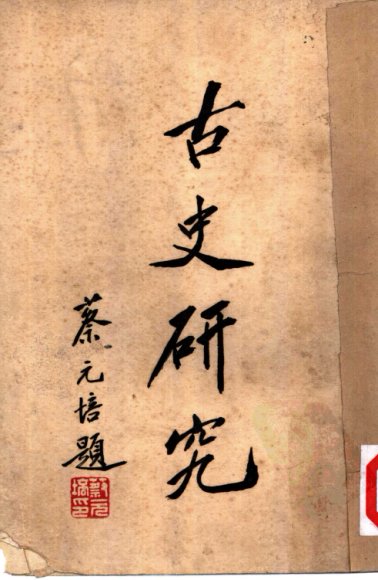 古史研究
蔡元培題
蔡元培印